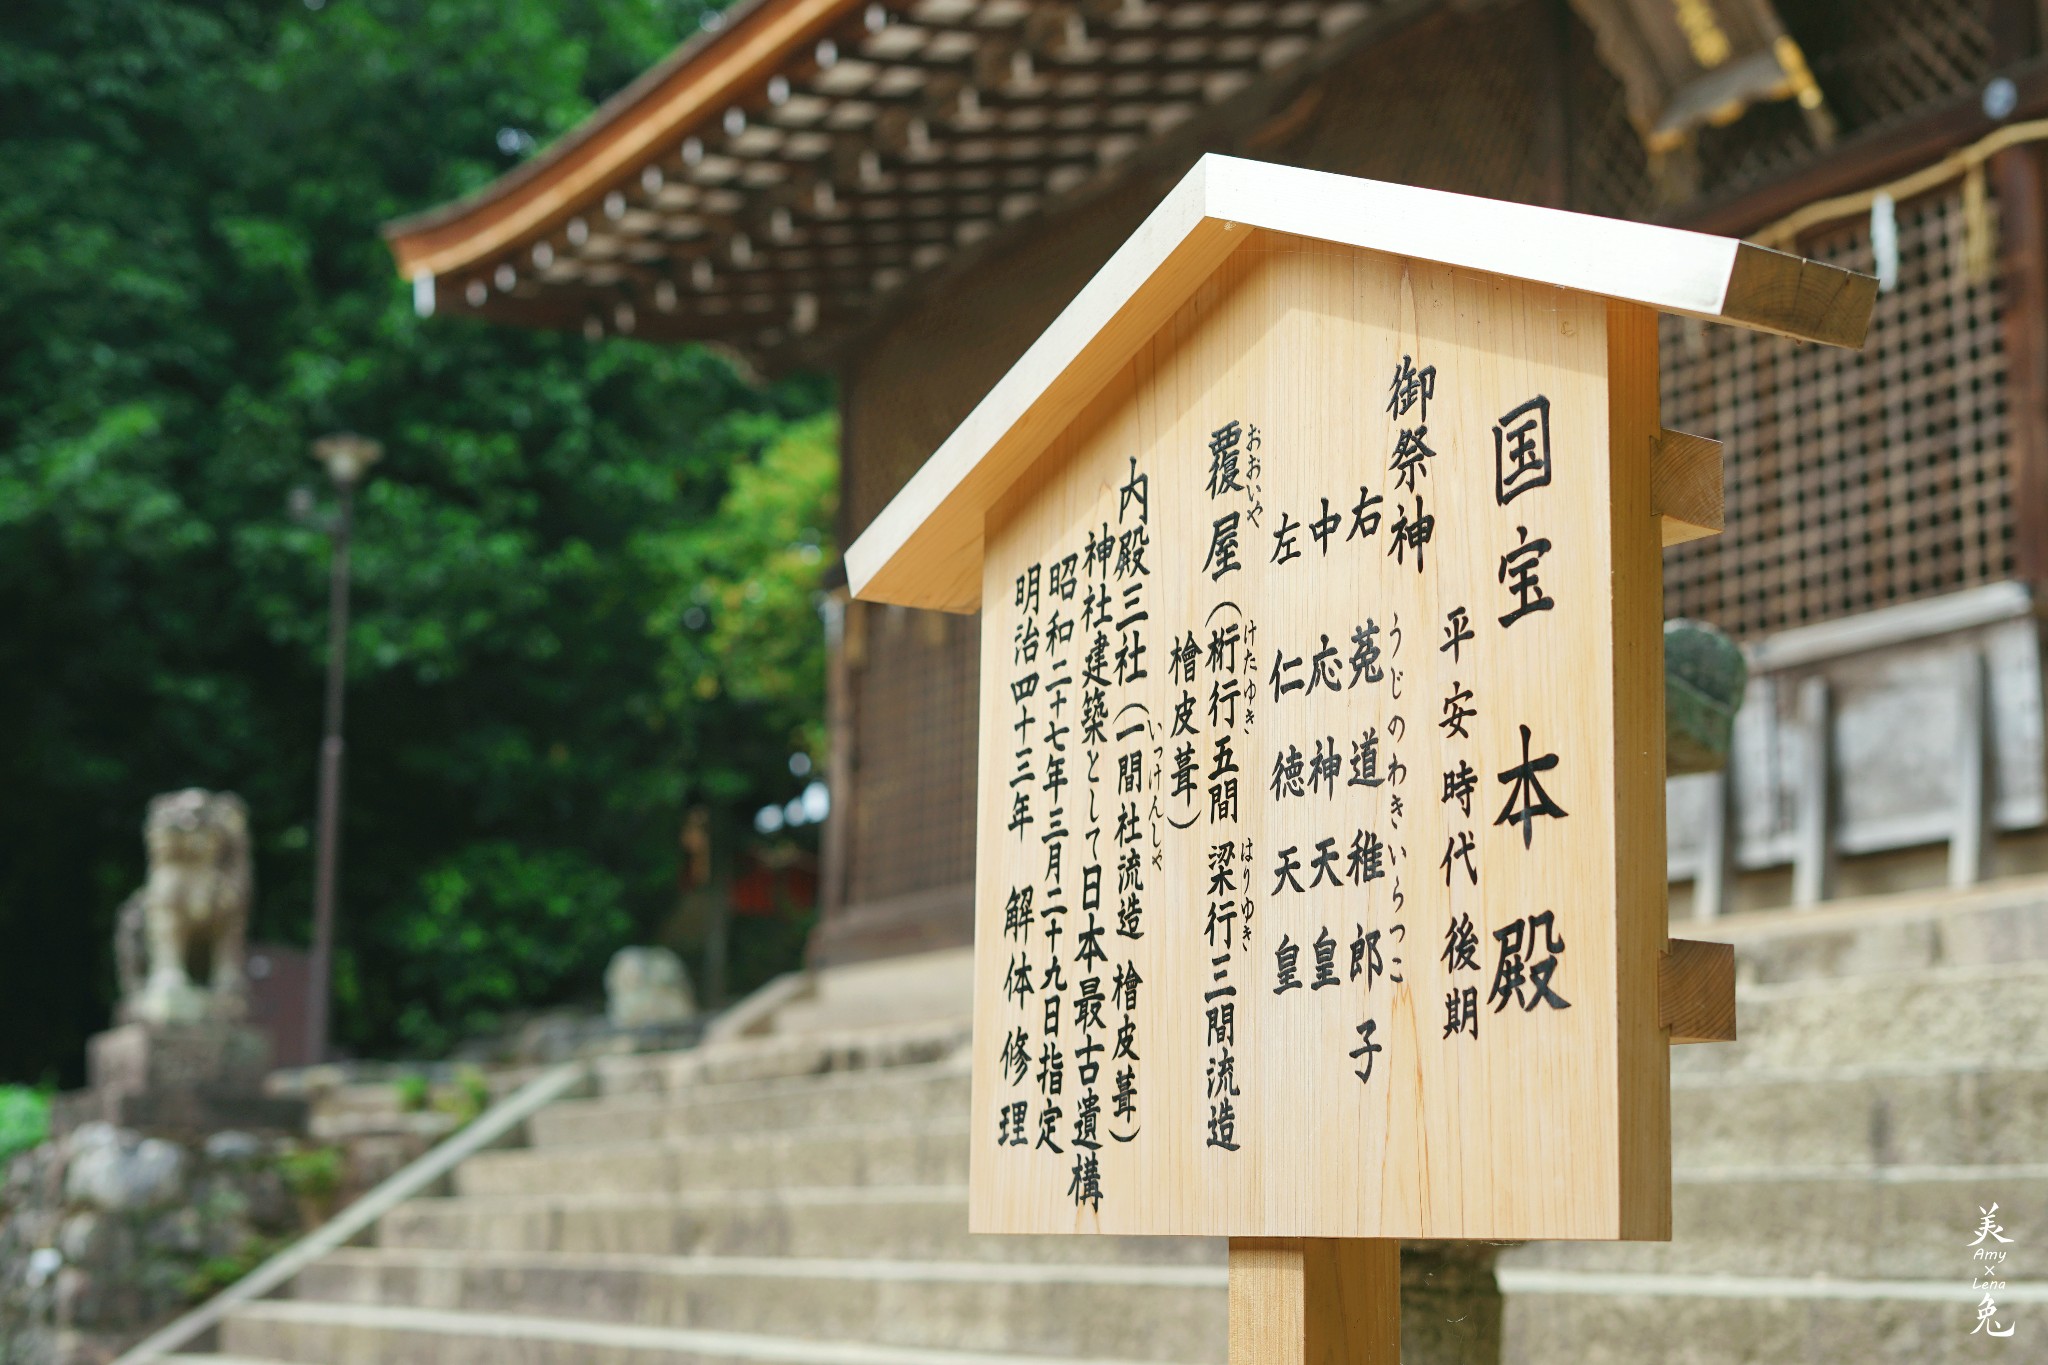 国宝 本殿
平安時代後期
御祭神
右 菟道稚郎子
うじのわきいらつこ
中 応神天皇
左 仁徳天皇
覆屋(桁行五間 梁行三間流造
おおいや けたゆき はりゆき
檜皮葺)
内殿三社(一間社流造 檜皮葺)
いっけんしゃ
神社建築として日本最古遺構
昭和二十七年三月二十九日指定
明治四十三年 解体修理
美
Amy
×
Lena
兔